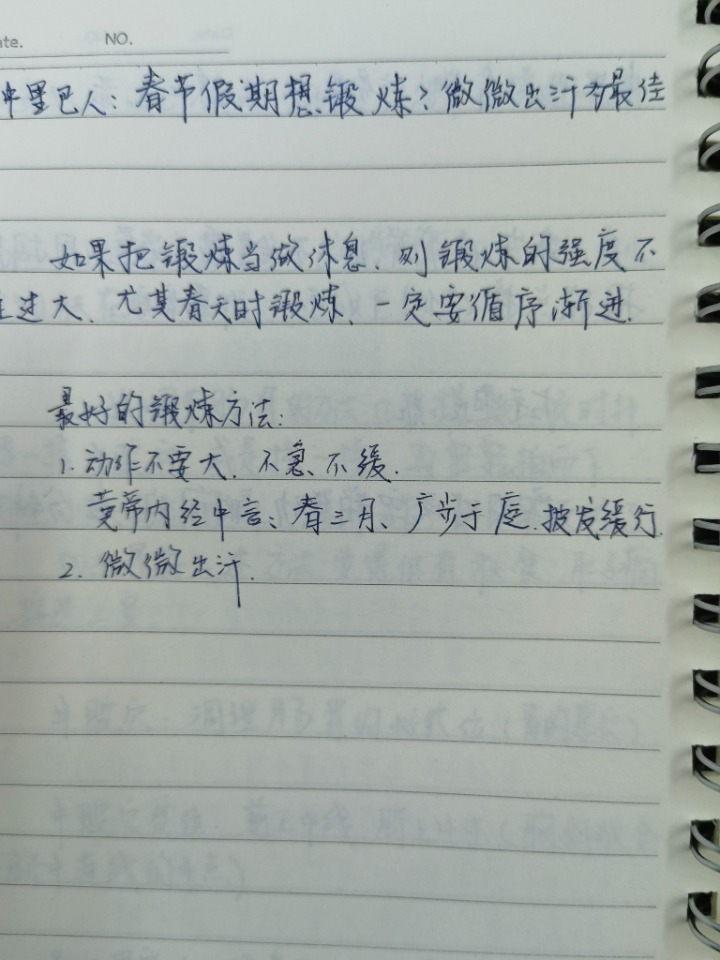 ate. NO.
中里巴人：春节假期想锻炼？微微出汗为最佳
如果把锻炼当做休息、则锻炼的强度不
过大、尤其春天时锻炼、一定要循序渐进.
最好的锻炼方法：
1. 动作不要大、不急、不缓.
黄帝内经中言：春三月、广步于庭.披发缓行.
2. 微微出汗.